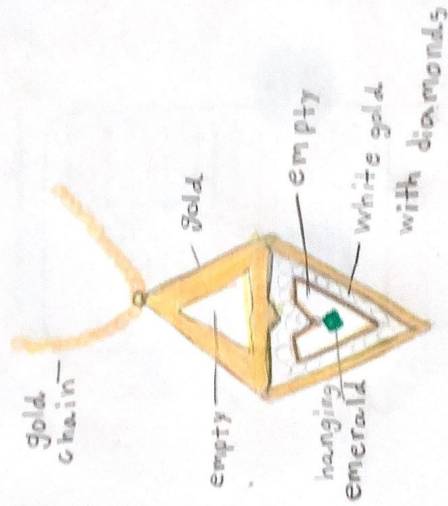 gold
chain
gold
empty
empty
hanging
emerald
white gold
with diamonds